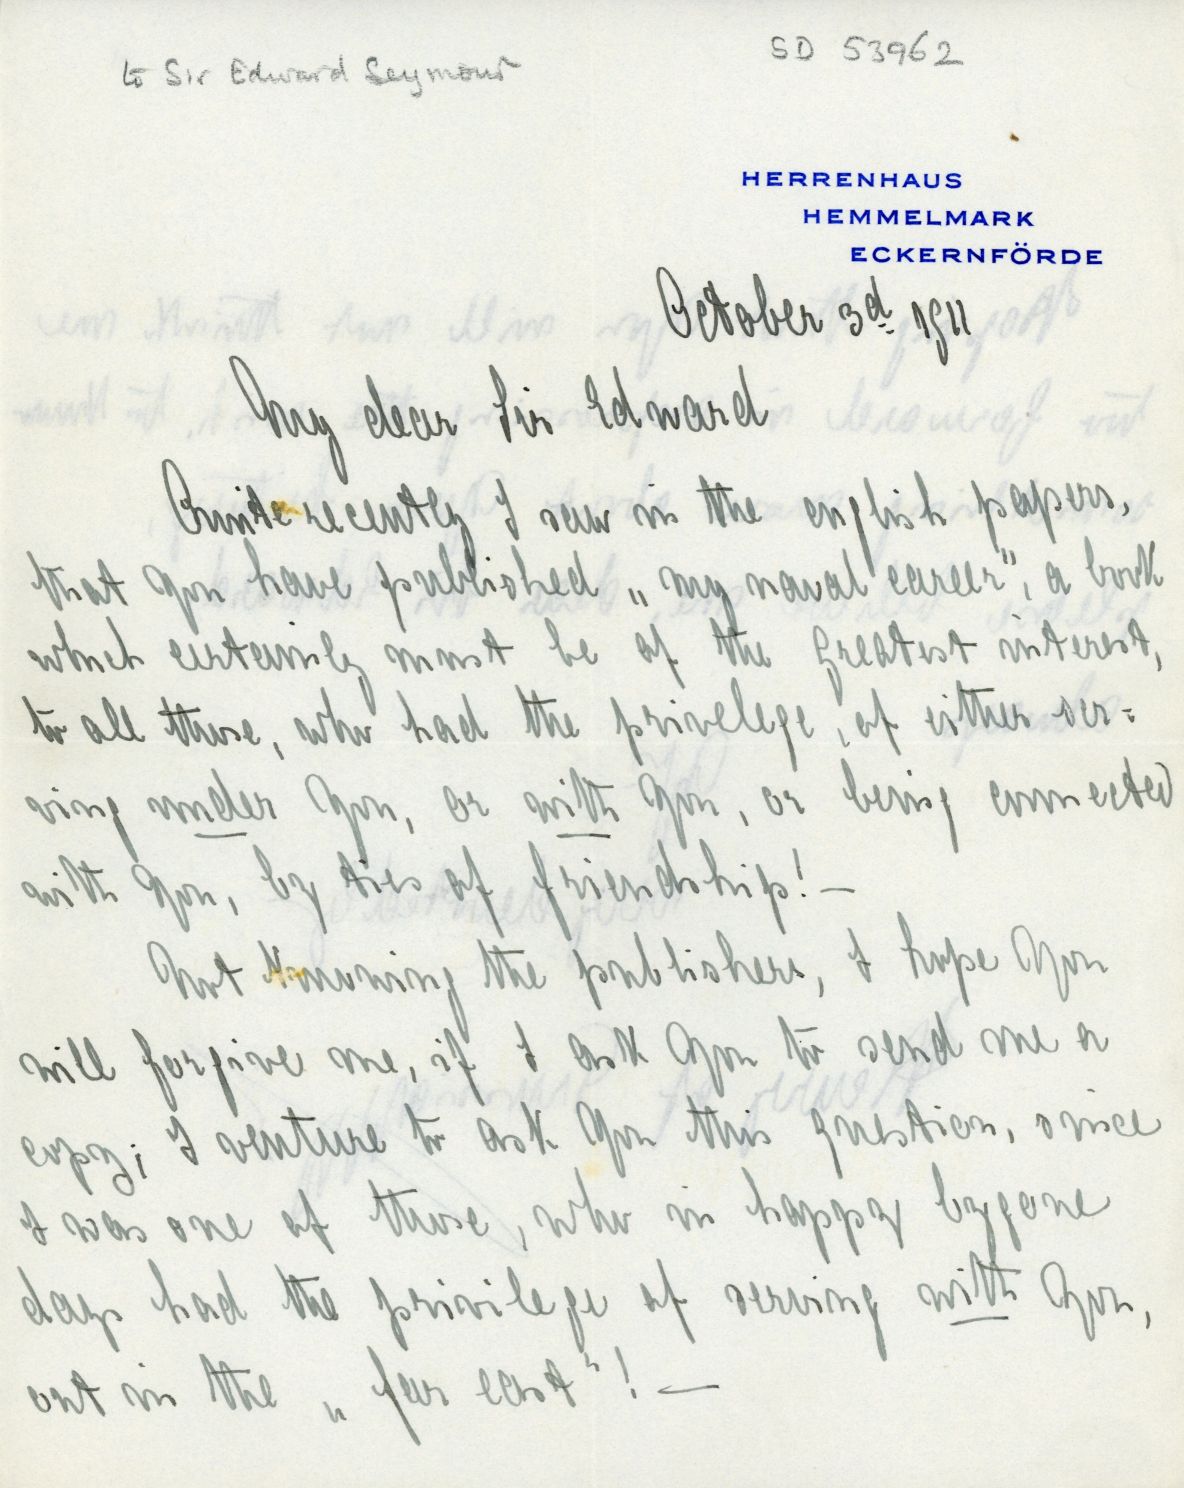 to Sir Edward Seymour
SD 53962
HERRENHAUS
HEMMELMARK
ECKERNFÖRDE
October 3d. 1911
My dear Sir Edward
Quite recently I saw in the english papers,
that You have published „my naval career", a book
which certainly must be of the greatest interest,
to all those, who had the privelege, of either ser=
ving under You, or with You, or being connected
with You, by ties of friendship! —
Not Knowing the publishers, I hope You
will forgive me, if I ask You to send me a
copy; I venture to ask You this question, since
I was one of those, who in happy bygone
days had the privilege of serving with You,
out in the „far east"! —